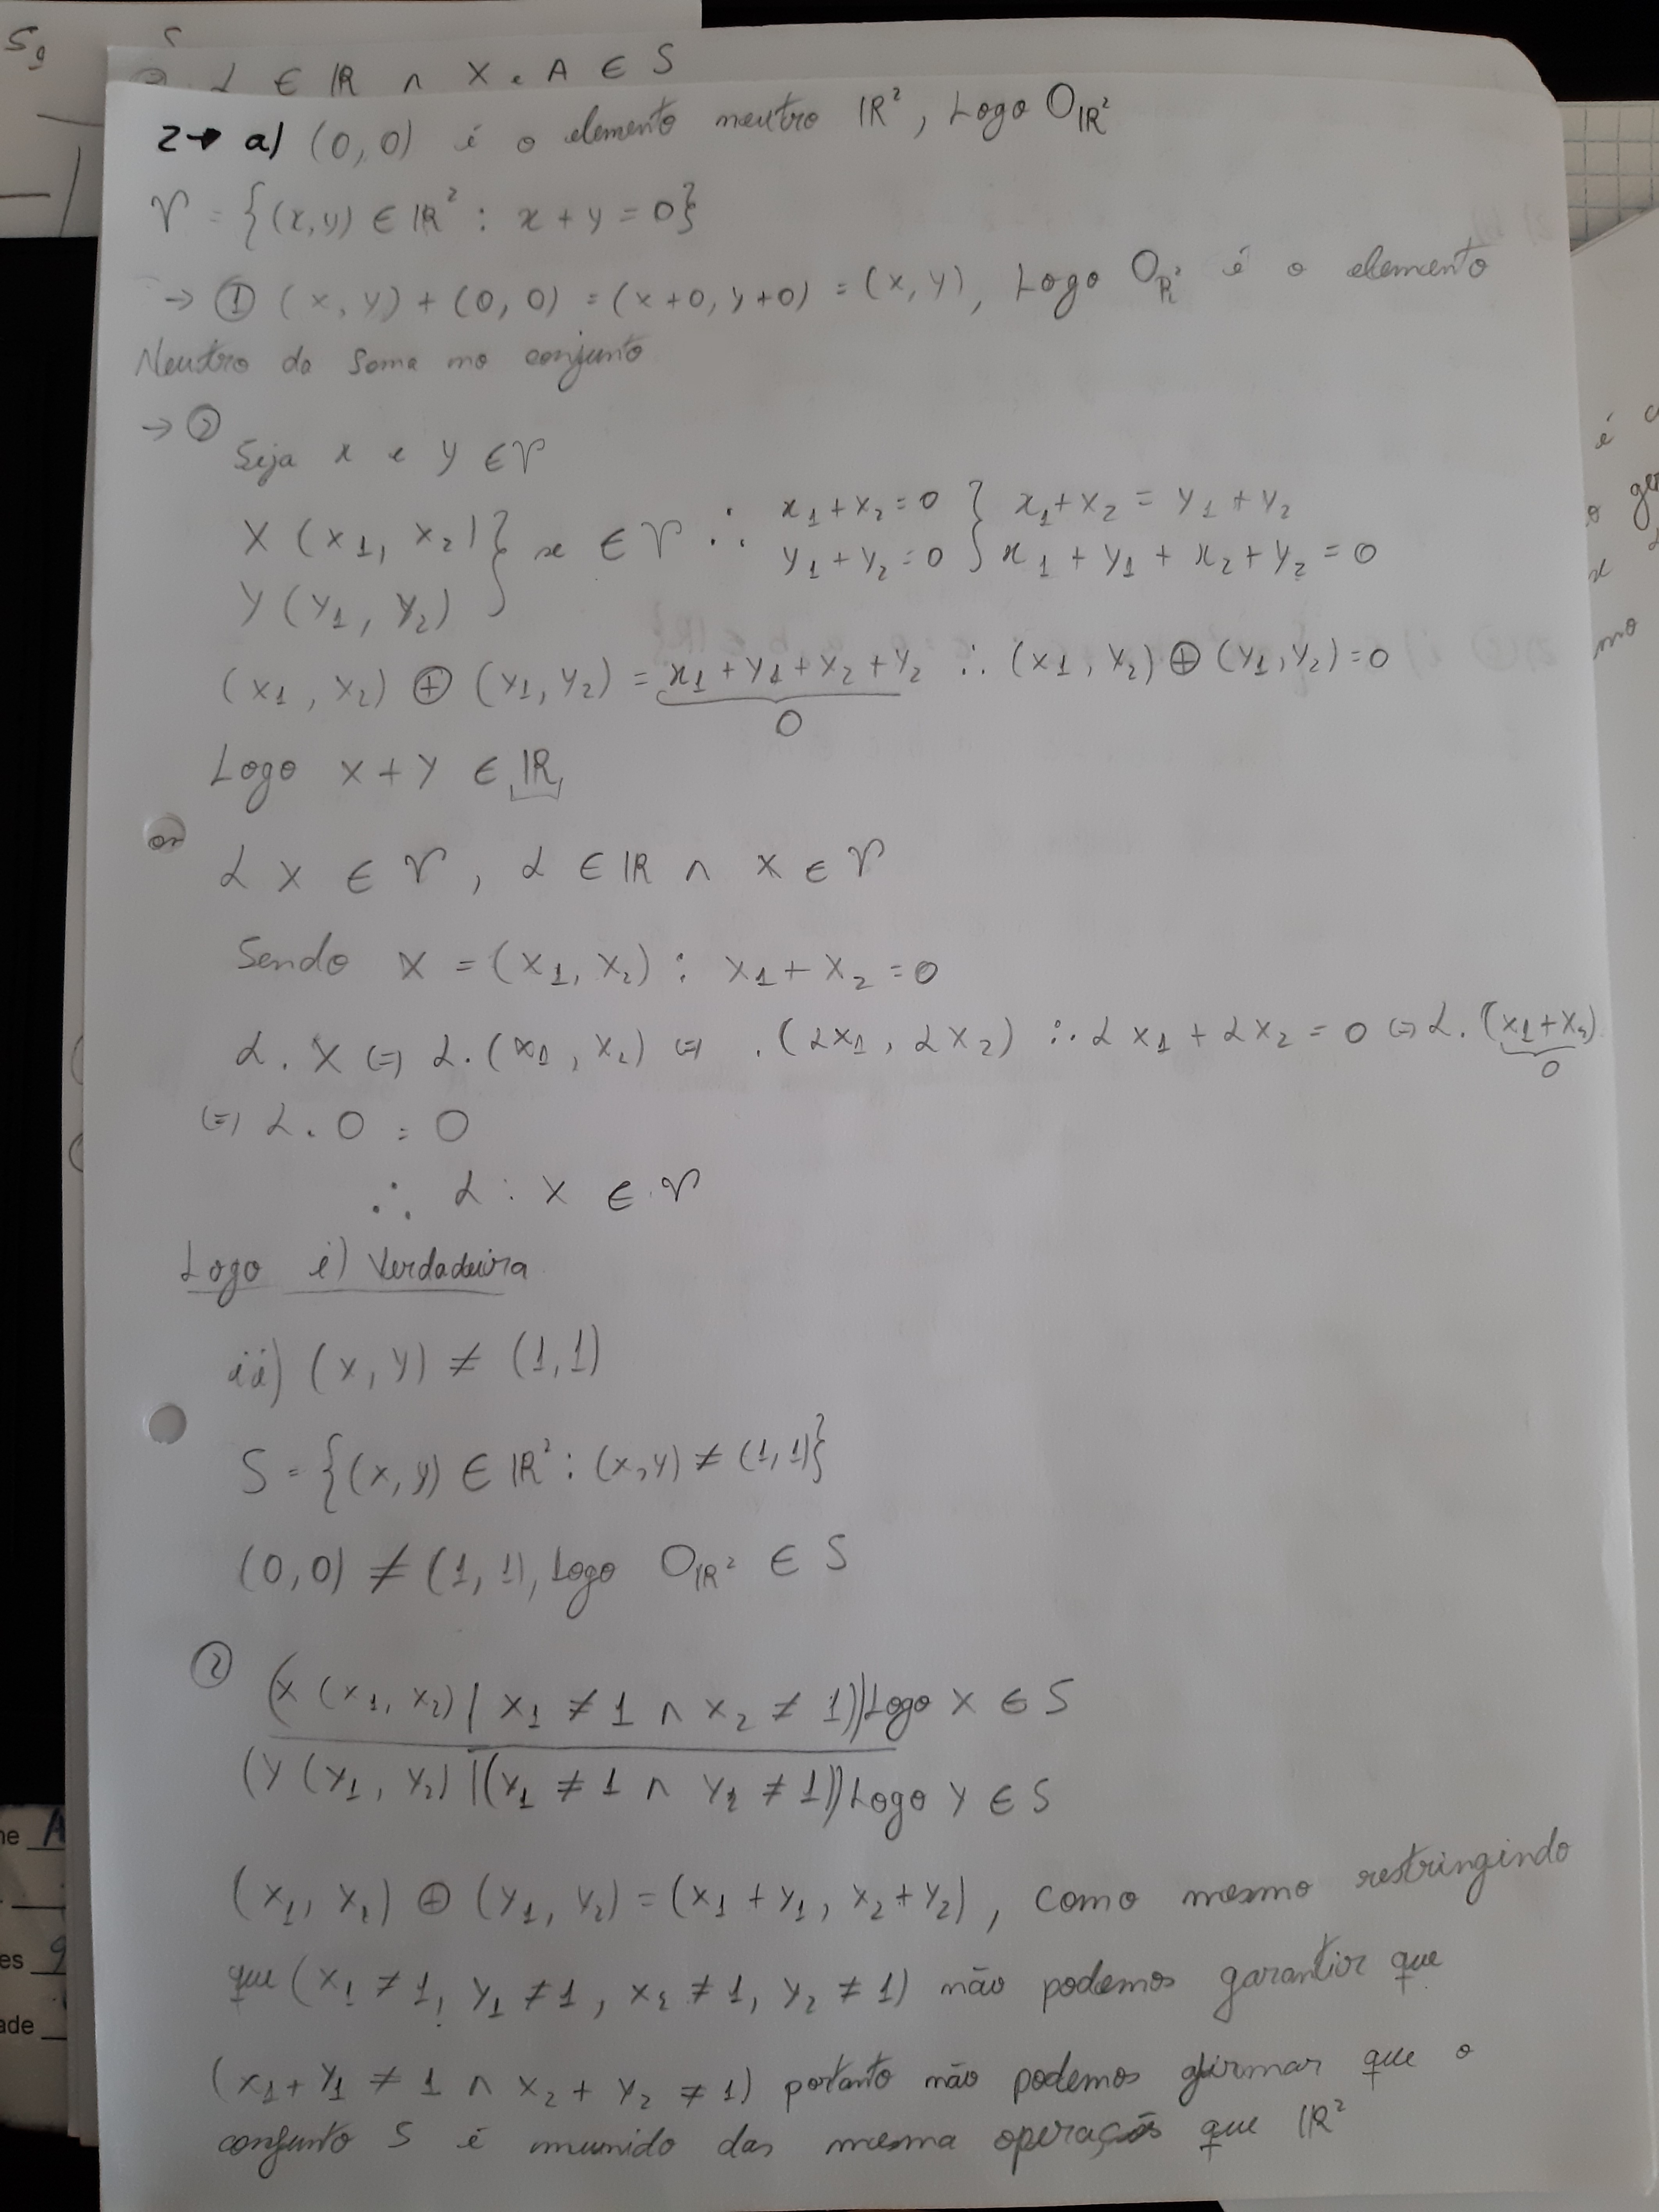 S
α ∈ ℝ ∧ X ∈ A ∈ S
2→ a) (0,0) é o elemento neutro ℝ², Logo O_ℝ²
𝒱 = {(x,y) ∈ ℝ² : x + y = 0}
→ ① (x,y) + (0,0) = (x+0, y+0) = (x,y), Logo O_ℝ² é o elemento
Neutro da Soma no conjunto
→ ②
Seja x e y ∈ 𝒱
X (x₁, x₂) } se ∈ 𝒱 ∴ x₁+x₂=0 } x₁+x₂ = y₁+y₂
Y (y₁, y₂) } y₁+y₂=0 } x₁ + y₁ + x₂ + y₂ = 0
(x₁, x₂) ⊕ (y₁, y₂) = x₁+y₁+x₂+y₂ ∴ (x₁, y₂) ⊕ (y₁, y₂)=0
0
Logo x + y ∈ ℝ
α X ∈ 𝒱, α ∈ ℝ ∧ X ∈ 𝒱
Sendo X = (x₁, x₂) : x₁+x₂=0
α . X (=) α.(x₁, x₂) (=) .(αx₁, αx₂) ∴ αx₁ + αx₂ = 0 (=) α.(x₁+x₂)
0
(=) α . 0 = 0
∴ α . X ∈ 𝒱
Logo i) Verdadeira
ii) (x,y) ≠ (1,1)
S = {(x,y) ∈ ℝ² : (x,y) ≠ (1,1)}
(0,0) ≠ (1,1), Logo O_ℝ² ∈ S
② (X (x₁, x₂) | x₁ ≠ 1 ∧ x₂ ≠ 1)) Logo X ∈ S
(Y (y₁, y₂) |(y₁ ≠ 1 ∧ y₂ ≠ 1)) Logo Y ∈ S
(x₁, x₂) ⊕ (y₁, y₂) = (x₁ + y₁, x₂ + y₂), como mesmo restringindo
que (x₁ ≠ 1, y₁ ≠ 1, x₂ ≠ 1, y₂ ≠ 1) não podemos garantir que
(x₁+y₁ ≠ 1 ∧ x₂ + y₂ ≠ 1) portanto não podemos afirmar que o
conjunto S é munido das mesma operação que ℝ²
é
mo
ade